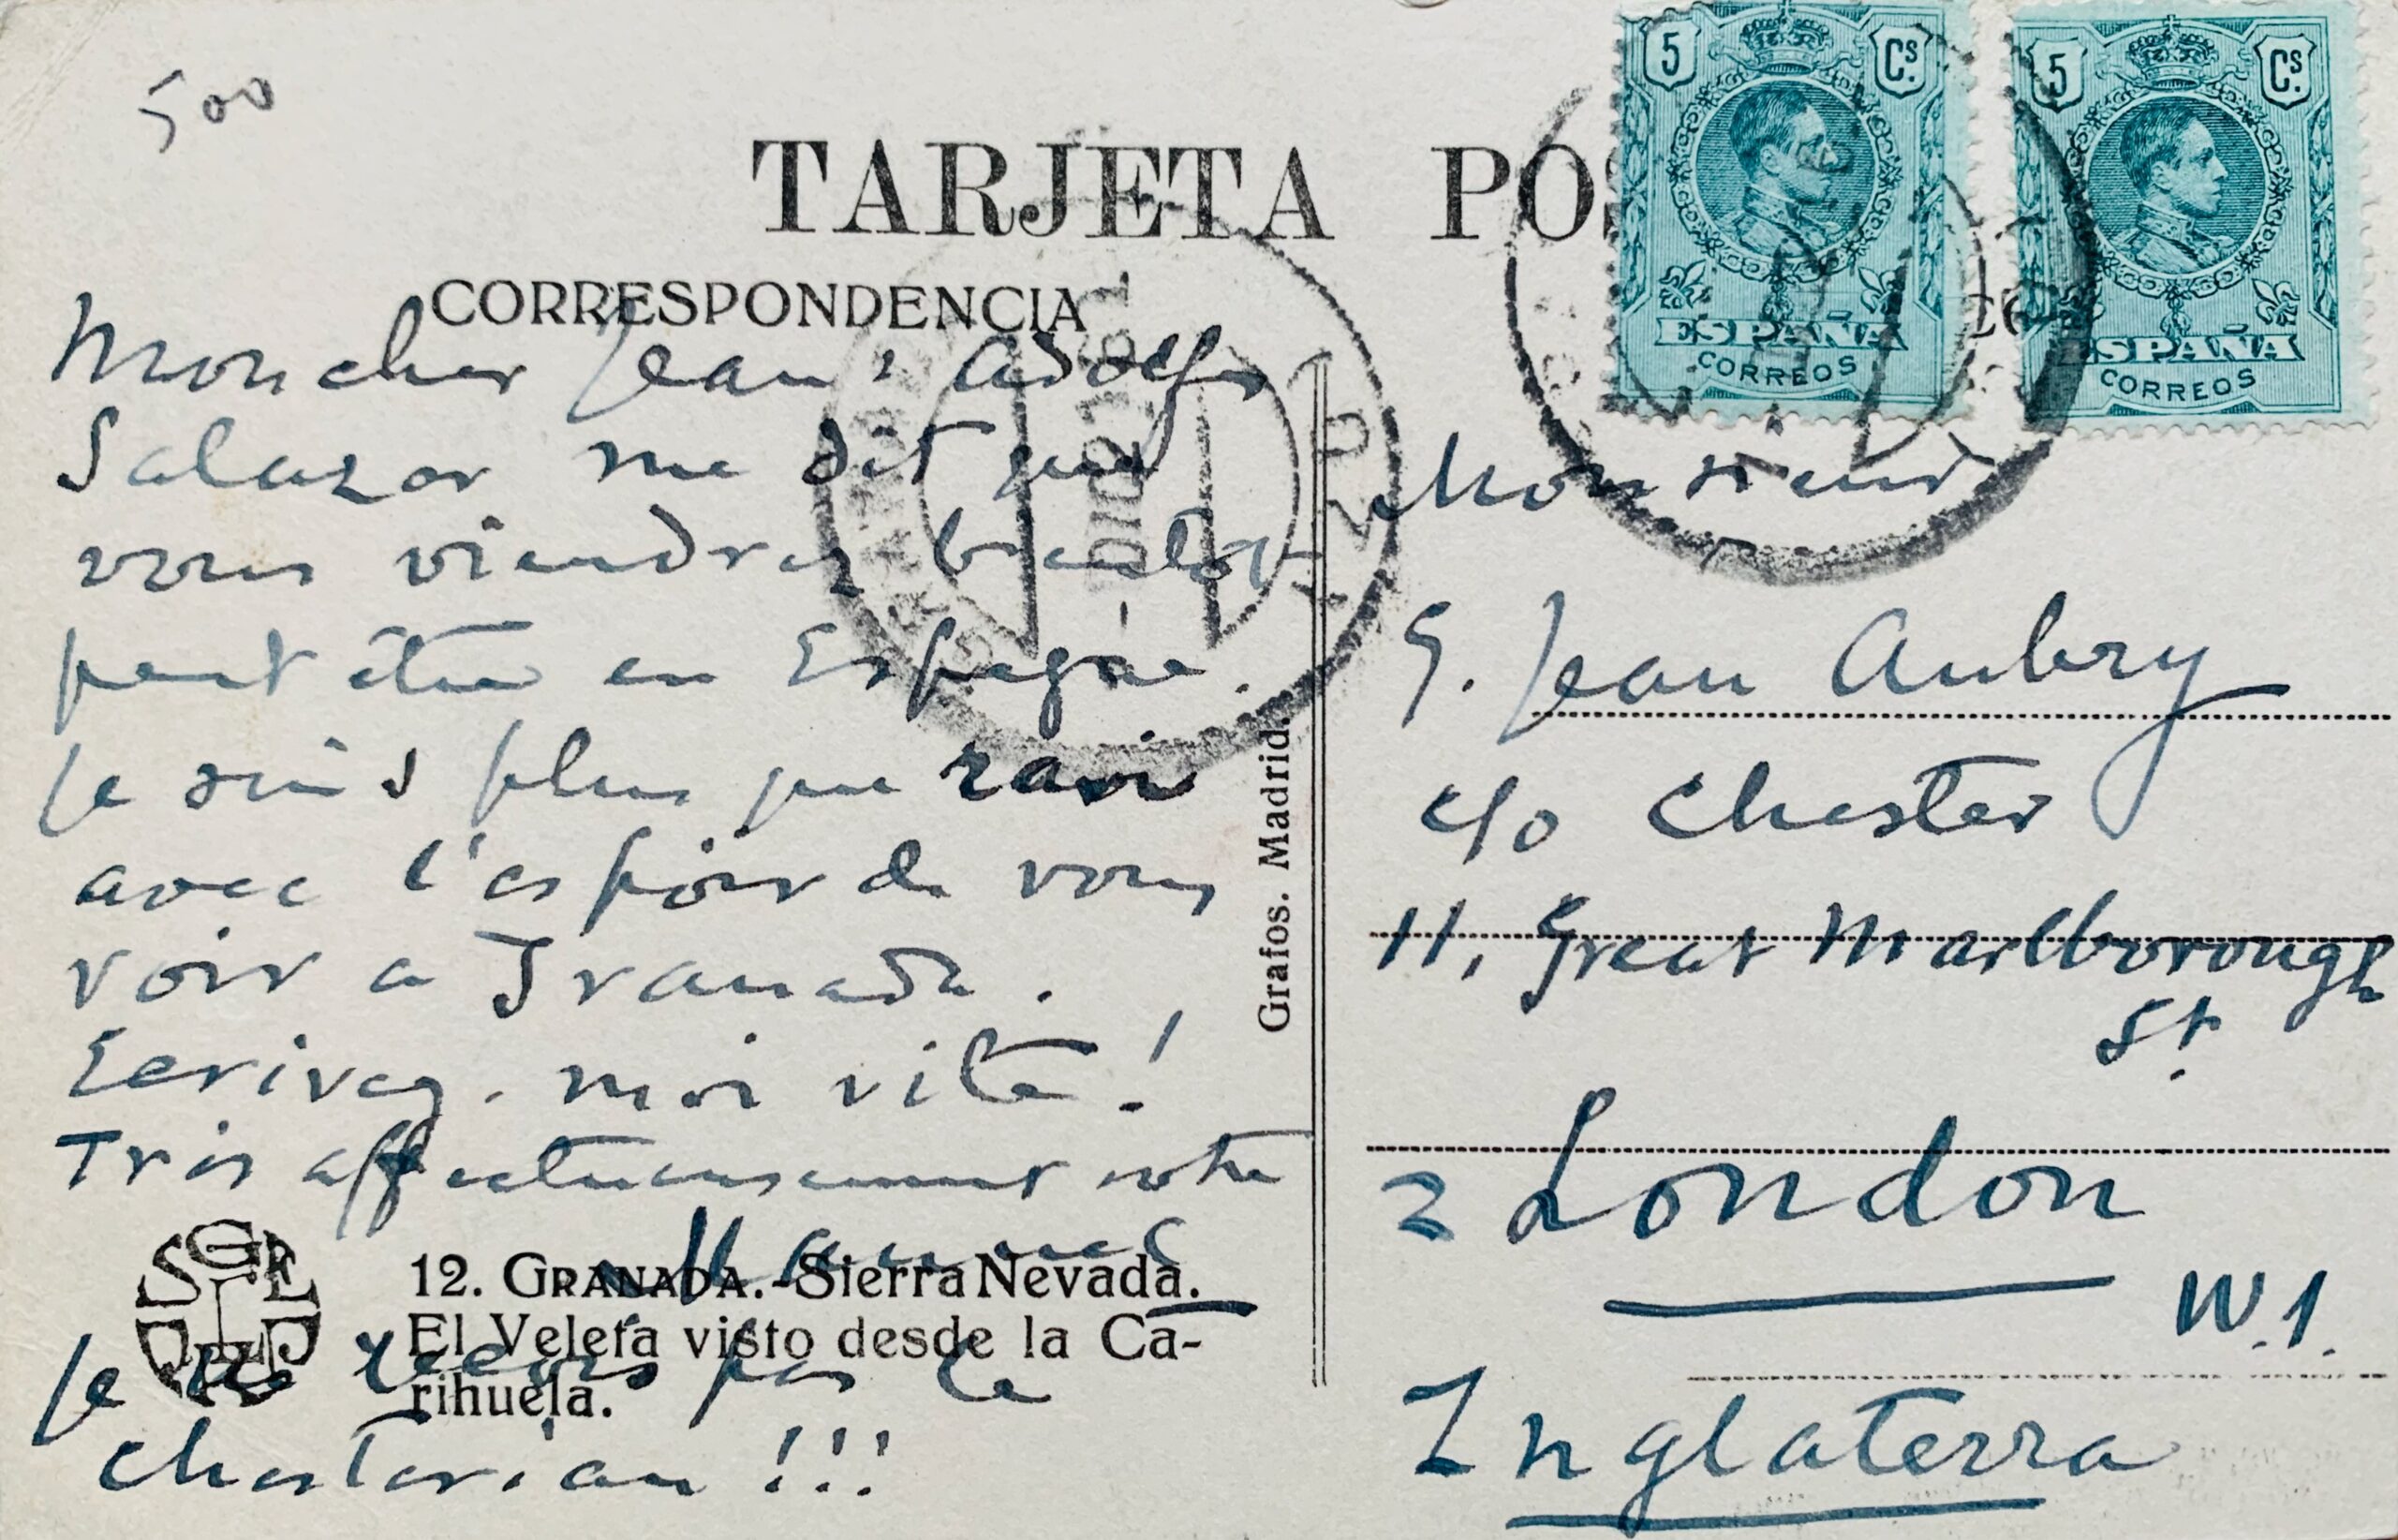 500
TARJETA PO
CORRESPONDENCIA
5 Cs.
ESPAÑA
CORREOS
5 Cs.
ESPAÑA
CORREOS
Mon cher Jean: Adolfo
Salazar me dit que
vous viendrez bientot
peut être en Espagne.
Je suis plus que ravi
avec l'espoir de vous
voir a Granada.
Ecrivez-moi vite!
Très affectueusement votre
Manuel
Je ne reçois pas le
Chesterian!!!
12. GRANADA.-Sierra Nevada.
El Veleta visto desde la Ca-
rihuela.
Grafos. Madrid.
Monsieur
G. Jean Aubry
c/o Chester
11, Great Marlborough
St.
London
W.1.
Inglaterra